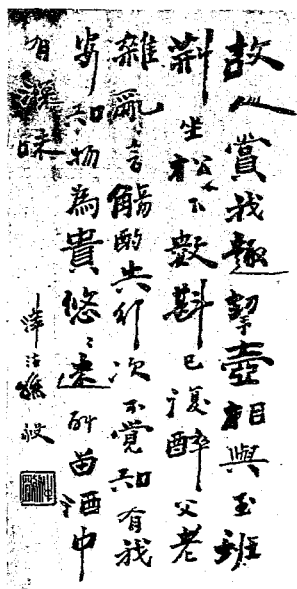 故人賞我趣挈壺相與至班
荊坐松下數斟已復醉父老
雜亂言觴酌失行次不覺知有我
安知物為貴悠〻迷所留酒中
有深味
津沽孫